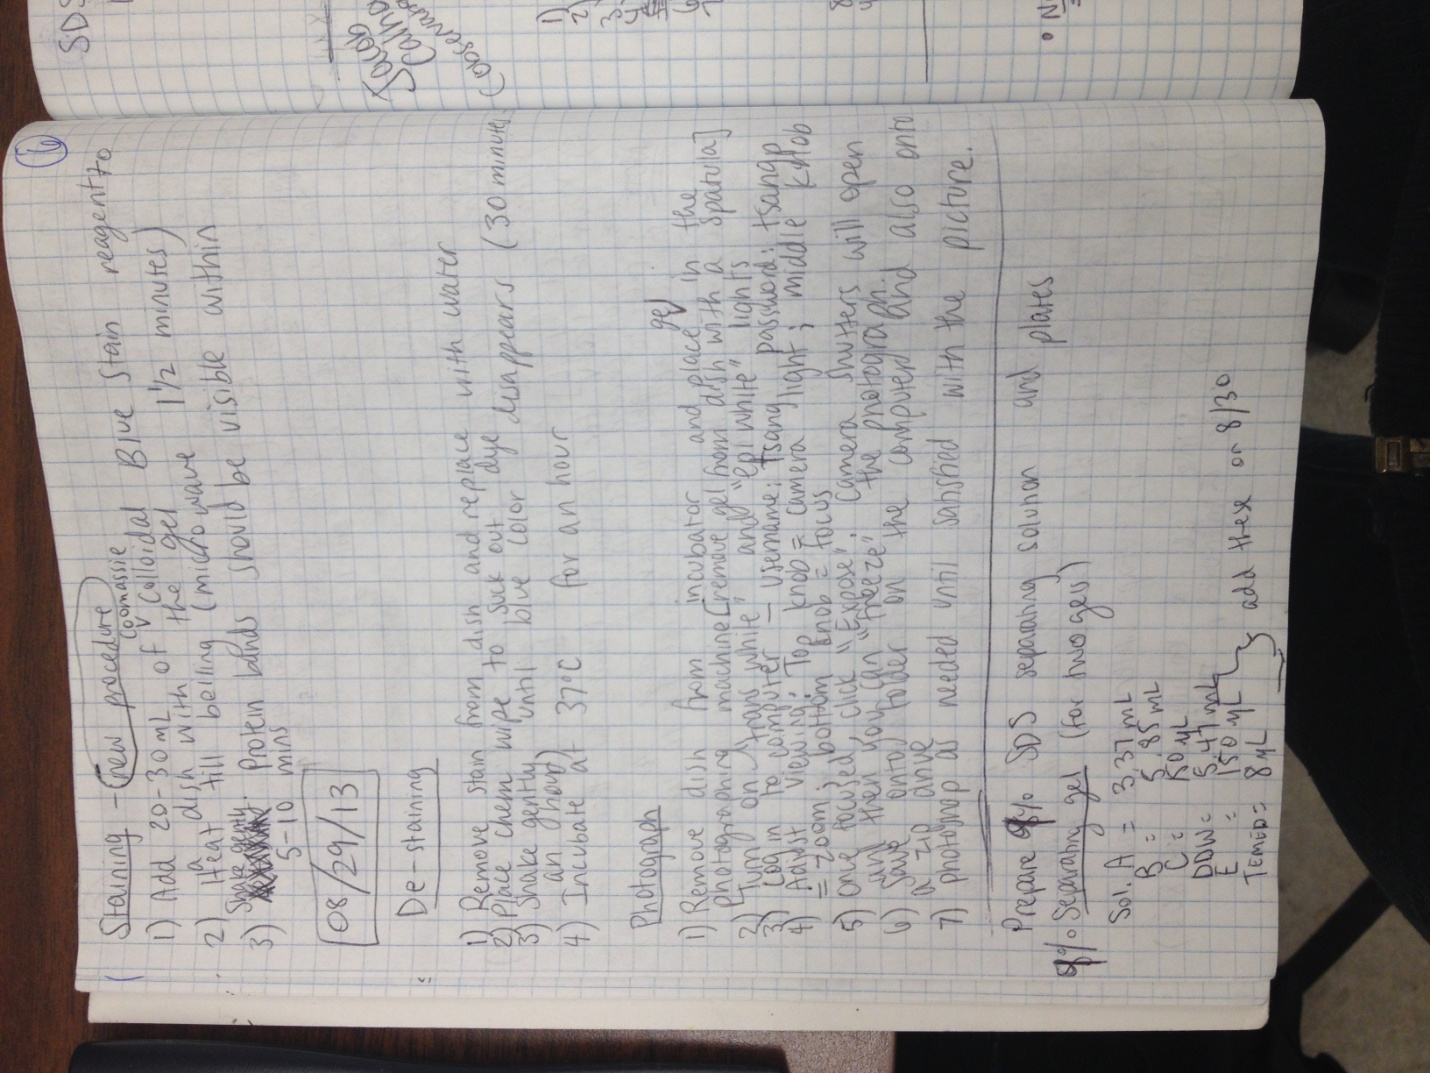 16
Staining - new procedure
Coomassie
1) Add 20-30 mL of Colloidal Blue Stain reagent to
a dish with the gel
2) Heat till boiling (microwave 1 1/2 minutes)
3) Shake gently. Protein bands should be visible within
5-10 mins
08/29/13
De-staining
1) Remove stain from dish and replace with water
2) Place chem wipe to suck out dye
3) Shake gently until blue color disappears (30 minutes
an hour)
4) Incubate at 37°C for an hour
Photograph
gel
1) Remove dish from incubator and place in the
photographing machine [remove gel from dish with a spatula]
2) Turn on "trans white" and "epi white" lights
3) Log in to computer - username: tsang password: tsang
4) Adjust viewing: Top knob = camera light; middle knob
= zoom; bottom knob = focus
5) One focused, click "Expose". Camera shutters will open
and then you can "freeze" the photograph.
6) Save onto folder on the computer and also onto
a zip drive
7) photograph as needed until satisfied with the picture.
Prepare 8% SDS separating solution and plates
8% Separating gel (for two gels)
Sol. A = 3.37 mL
B = 5.85 mL
C = 150 µL
DDW = 5.47 mL
E = 150 µL
Temed = 8 µL
add these on 8/30
SDS